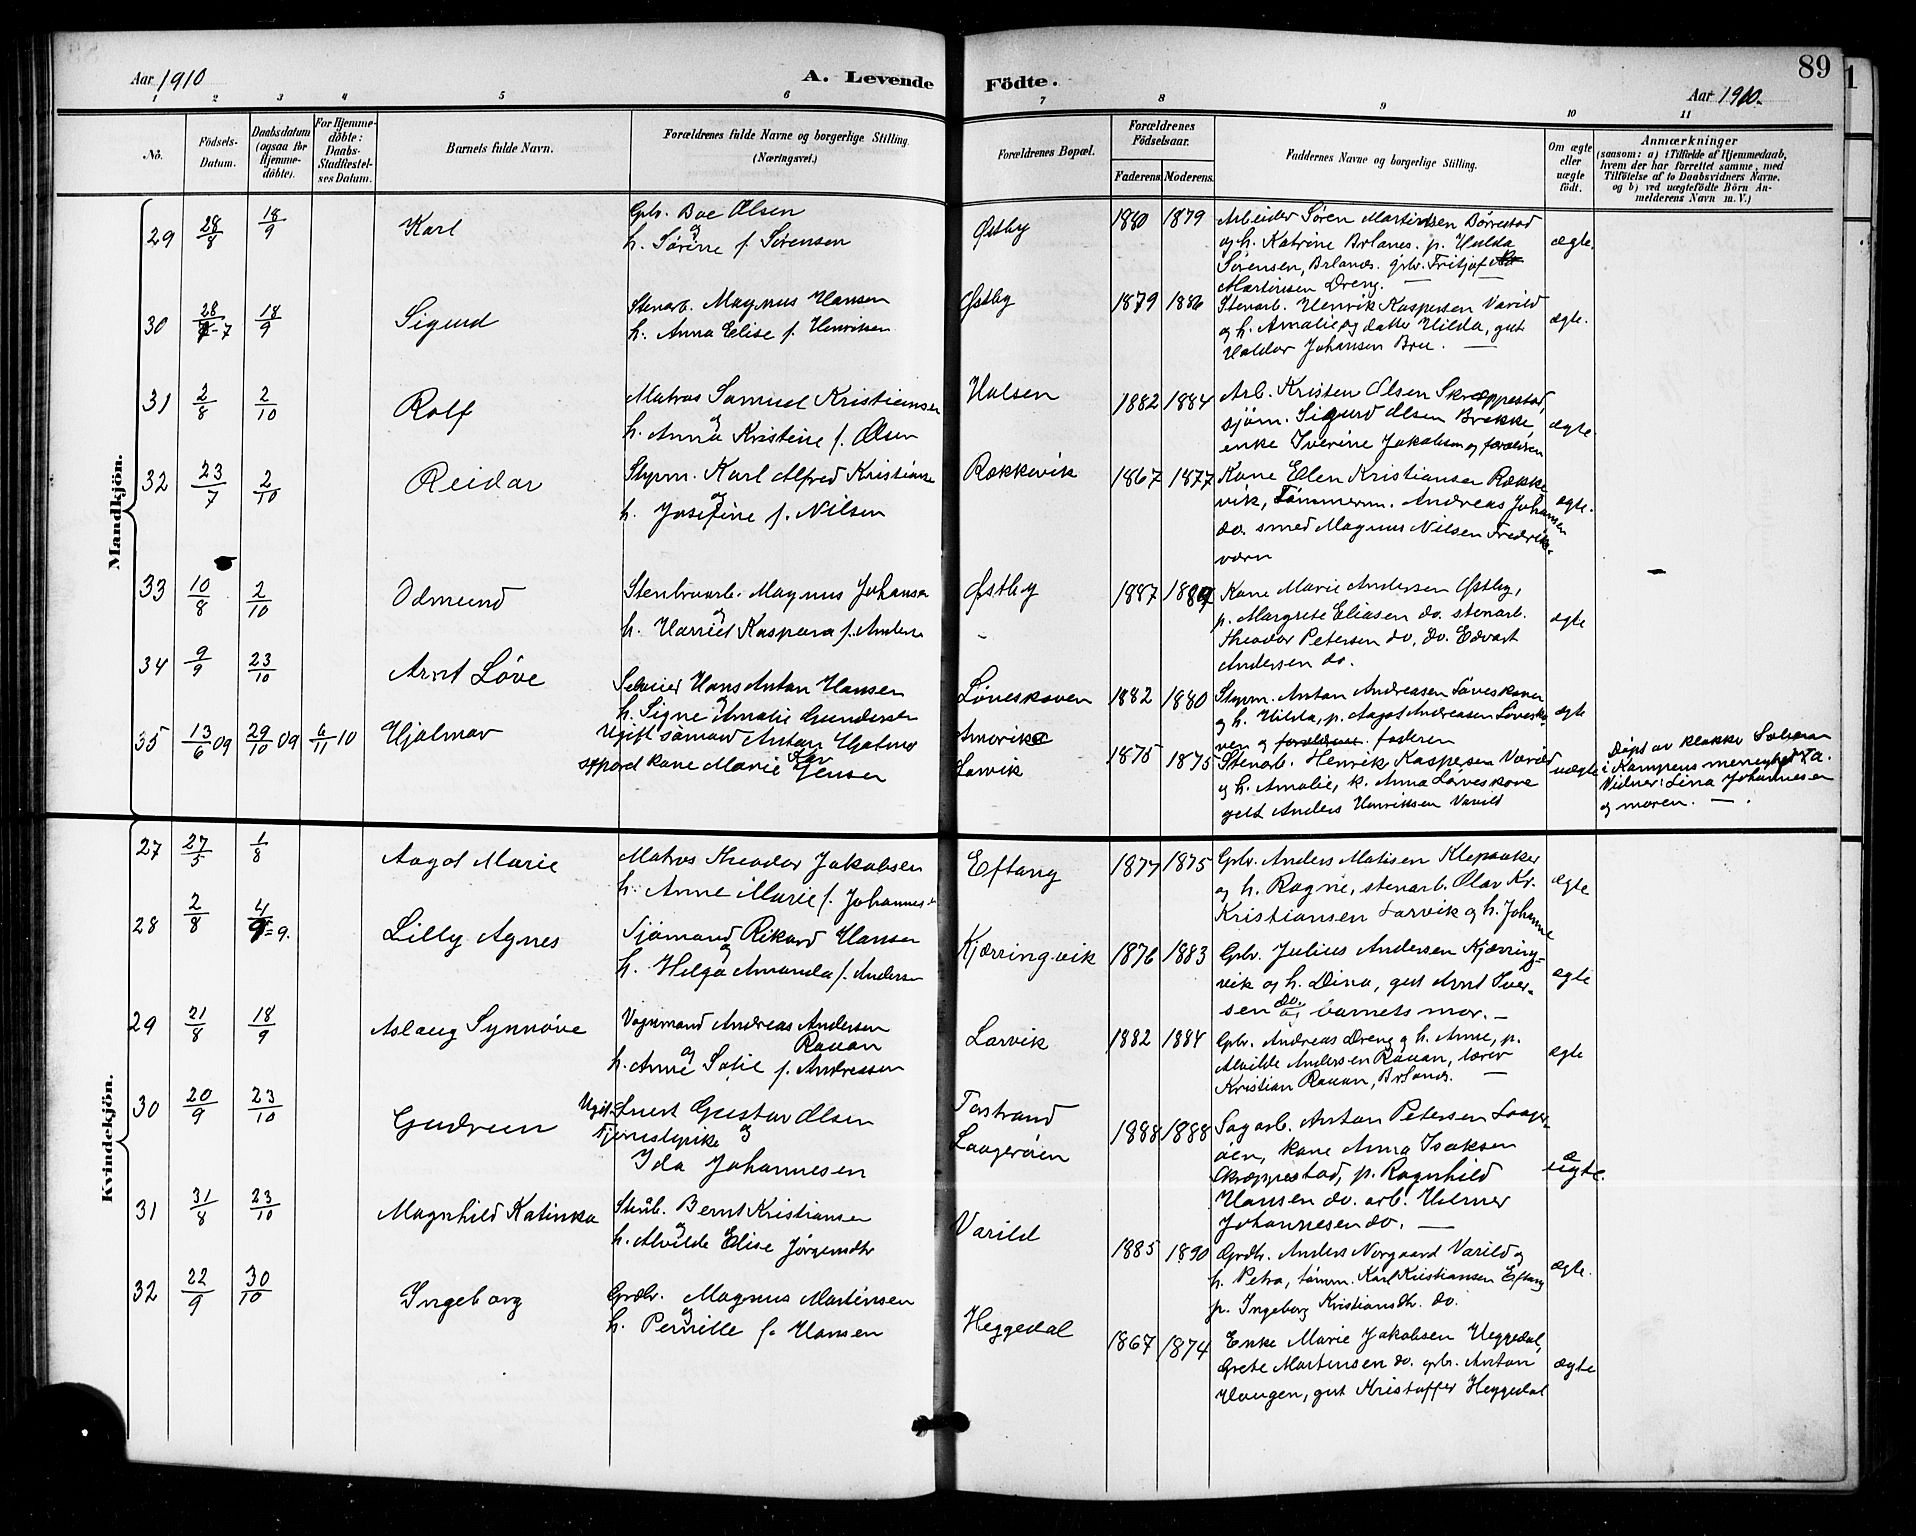 89
Aar 1910
A. Levende Födte.
Aar 1910.
1 2 3 4 5 6 7 8 9 10 11
No.
Födsels-Datum.
Daabsdatum (ogsaa for Hjemme-döbte).
For Hjemme-döbte: Daabs-Stadfæstel-ses Datum.
Barnets fulde Navn.
Forældrenes fulde Navne og borgerlige Stilling.
(Næringsvei.)
Forældrenes Bopæl.
Forældrenes Födselsaar.
Faderens. Moderens.
Faddernes Navne og borgerlige Stilling.
Om ægte eller uægte födt.
Anmærkninger
(saasom: a) i Tilfælde af Hjemmedaab,
hvem der har forrettet samme, med
Tilföielse af to Daabsvidners Navne,
og b) ved uægtefödte Börn An-
melderens Navn m. V.)
Mandkjön.
29 28/8 18/9 Karl
Gbr. Boe Olsen
og
h. Sørine f. Sørensen
Østby 1880 1879
Arbeider Søren Martinsen Børrestad
og h. Katrine Brlanes. p. Hulda
Sørensen, Brlanes. gbr. Fritjof
Martinsen Dreng.
ægte.
30 28/7-7 18/9 Sigurd
Stenarb. Magnus Hansen
h. Anna Elise f. Henriksen
Østby 1879 1886
Stenarb. Henrik Kaspersen Varild
og h. Amalie og datter Hilda, gut
Haldor Johansen Bru. —
ægte.
31 2/8 2/10 Rolf
Matros Samuel Kristiansen
og
h. Anna Kristine f. Olsen
Halsen 1882 1884
Arb. Kristen Olsen Skræppestad,
sjøm. Sigurd Olsen Brekke,
enke Iverine Jakobsen og forældren
ægte.
32 23/7 2/10 Reidar
Styrm. Karl Alfred Kristianse
og
h. Josefine f. Nilsen
Rækkevik 1867 1877
Kone Ellen Kristiansen Række
vik, Tømmerm. Andreas Johansen
do. smed Magnus Nilsen Fredriks-
værn
ægte.
33 10/8 2/10 Odmund
Stenbruarb. Magnus Johansen
og
h. Harriet Kaspara f. Anderse
Østby 1887 1889
Kone Marie Andersen Østby,
p. Margrete Eliasen do. stenarb.
Theodor Petersen do, do. Edvart
Andersen do.
ægte
34 9/9 23/10 Arnt Løve
Selveier Hans Anton Hansen
og
h. Signe Amalie Gundersen
Løveskoven 1882 1880
Styrm. Anton Andreasen Løveskoven
og h. Hilda, p. Aagot Andreasen Løvesko
ven og forældrene faderen
ægte
35 13/6 09 29/10 09 6/11 10 Hjalmar
Ugift sømand Anton Hjalmar
og
separ. kone Marie Jensen
Amerika
Larvik
1875 1875
Stenarb. Henrik Kaspersen Varild
og h. Amalie, k. Anna Løveskove
gut Anders Henriksen Varild
uægte
Døpt av klokke
i Kampens menighed
Vidner: Lina Johannesen
og moren. —
Kvindekjön.
27 27/5 1/8 Aagot Marie
Matros Theodor Jakobsen
h. Anne Marie f. Johannes
Eftang 1877 1875
Gbr. Anders Matisen Klepaaker
og h. Ragne, stenarb. Olav Kr.
Kristiansen Larvik og h. Johanne
ægte
28 2/8 4/9=9. Lilly Agnes
Sjømand Rikard Hansen
og
h. Helga Amanda f. Anderse
Kjærringvik 1876 1883
Gbr. Julius Andersen Kjærring-
vik og h. Dina, gut Arnt Iver-
sen do. og barnets mor. —
ægte
29 21/8 18/9 Aslaug Synnøve
Vognmand Andreas Andersen
Rauan
og
h. Anne Sofie f. Andreassen
Larvik 1882 1884
Gbr. Andreas Dreng og h. Anne, p.
Alvilde Andersen Rauan, lærer
Kristian Rauan, Brlanes. —
ægte
30 20/9 23/10 Gudrun
Ugift Snert Gustav Olsen
Tjenestepike og
Ida Johannesen
Torstrand
Laagerøien
1888 1888
Sagarb. Anton Petersen Laager-
øien, kone Anna Isaksen
Skræppestad, p. Ragnhild
Hansen do. arb. Helmer
Johannesen do. —
uægte.
31 31/8 23/10 Magnhild Katinka
Stenb. Bernt Kristiansen
og
h. Alvilde Elise Jørgensdtr
Varild 1885 1890
Grdbr. Anders Norgaard Varild og
h. Petra, tømm. Karl Kristiansen Eftang
p. Ingeborg Kristiansdtr. do.
ægte.
32 22/9 30/10 Ingeborg
Grdbr. Magnus Martinsen
og
h. Pernille f. Hansen
Heggedal 1867 1874
Enke Marie Jakobsen Heggedal,
Grete Martinsen do. gbr. Anton
Haugen, gut Kristoffer Heggedal
ægte